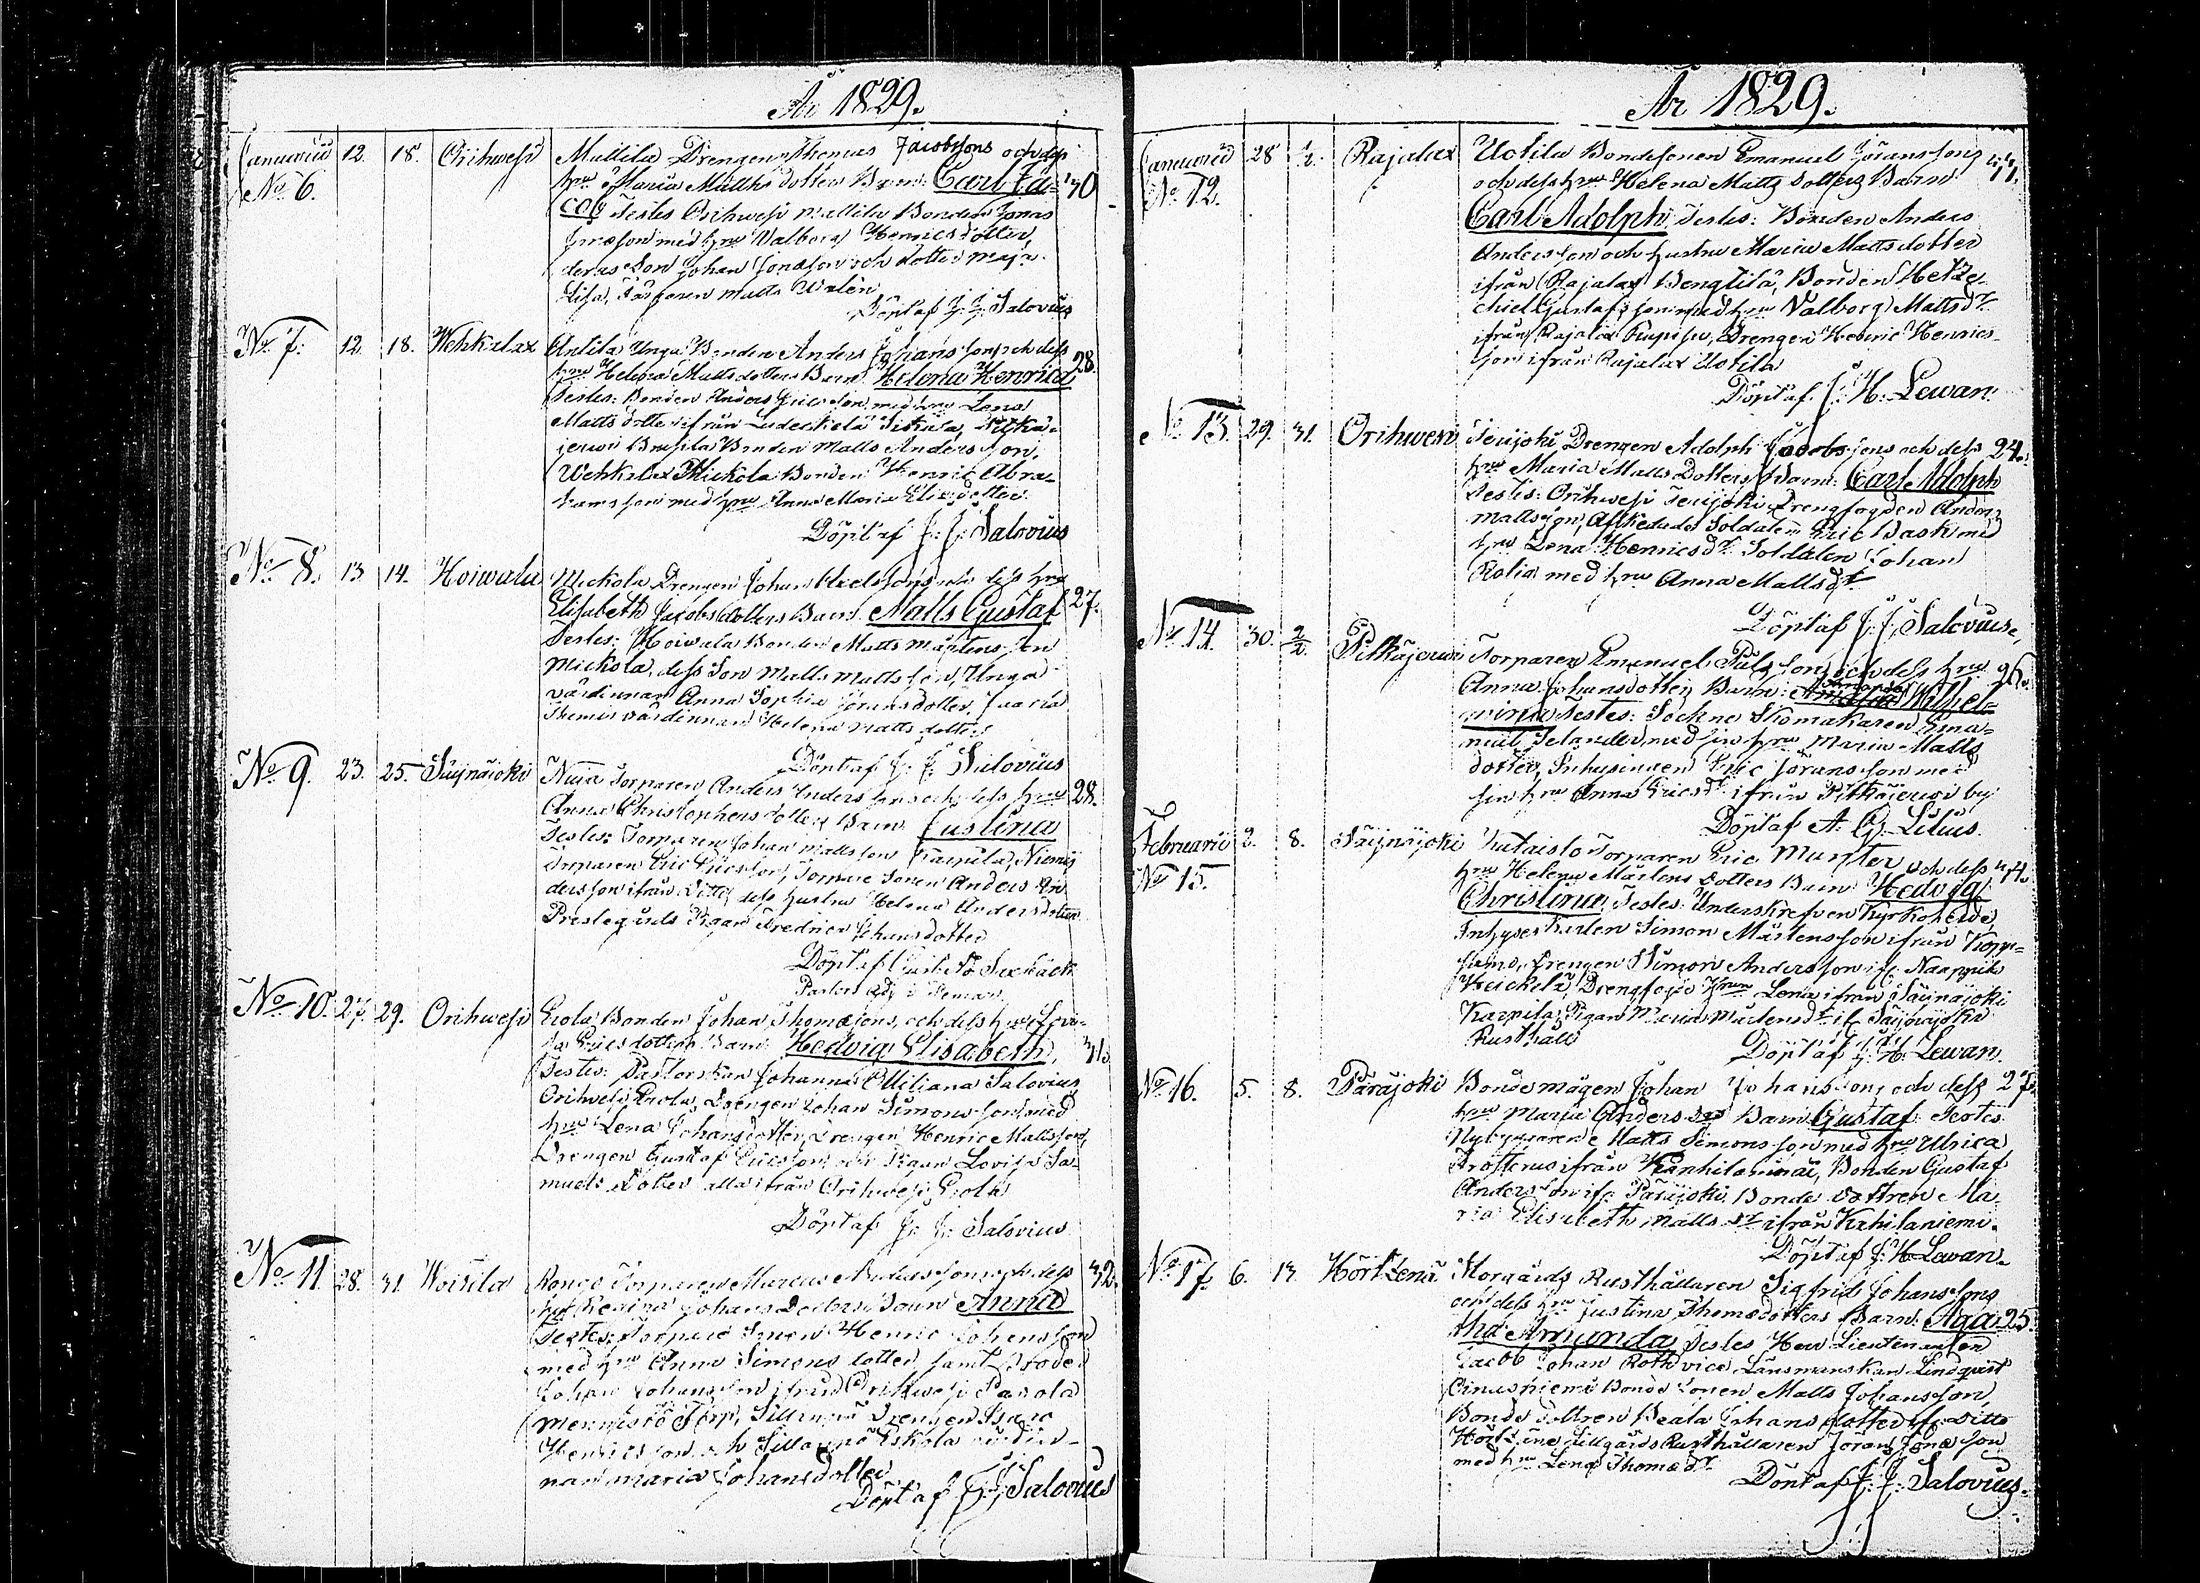 År 1829.
Januarii 12. 18. Orihwesi Mattila Drengen Thomas Jacobssons och dess
No 6. hru Maria Matts dotters Barn: Carl Ja- 30
cob Testes Orihwesi Mattila Bonden Jonas
Jonasson med hru Valborg Henricsdotter,
deras Son Johan Jonasson och dotter Maja
Lisa, Matts
Döpt af J: J: Salovius
No 7. 12. 18. Wehkalax Antila Unga Bonden Anders Johanssons och dess
hru Helena Matts dotters Barn Helena Henrica 28.
Testes: Bonden Anders Ericsson med hru Lena
Matts dotter ifrån
Bonden Matts Andersson,
Wehkalax Mickola Bonden Henric Abra-
hamsson med hru Anna Maria Eliædotter
Döpt af J: J: Salovius
No 8. 13. 14. Hoiwala Mickola Drengen Johan och dess hru
Elisabeth Jacobs dotters Barn Matts Gustaf 27.
Testes: Hoiwala Bonden Matts Mårtensson
Mickola, dess Son Matts Mattsson, Unga
värdinnan Anna Sophia Göransdotter,
värdinnan Helena Matts dotter
Döpt af J: J: Salovius
No 9. 23. 25. Säijnäjoki Torparen Anders Anderssons och dess hru 28.
Anna Christophers dotters Barn Justina
Testes: Torparen Johan Mattsson Karpila, Niemis
Torparen Eric Ericsson, Torpare Sonen Anders An-
dersson ifrån Ditto, dess hustru Helena Andersdotter
Prestegårds Pigan Fredrica Johansdotter
Döpt af
Pastors Adj: i Pemar
No 10. 27. 29. Orihwesi Erola Bonden Johan Thomæsons och dess hru Lovi-
sa Ericsdotters Barn Hedvig Elisabeth, 31.
Testes: Pastorskan Johanna Ullijana Salovius
Orihwesi Erola, Drengen Johan Simonsson med
hru Lena Johansdotter, Drengen Henric Mattsson,
Drengen Gustaf Ericsson och Pigan Lovisa Sa-
muels dotter alla ifrån Orihwesi Erola
Döpt af J: J: Salovius
No 11 28. 31. Woitila Torparen Marcus och dess
hru Regina Johans dotters Barn Anna 32.
Testes: Torpare Sonen Henric Johansson
med hru Anna Simons dotter samt Broder
Johan Johansson ifrån Orihwesi Parola
Torp, Sillanpä Drengen
Henricsson och Sillanpä Eskola värdin-
nan Maria Johansdotter
Döpt af J: J: Salovius
År 1829.
Januarii 28 1/2. Rajalax Uotila Bondesonen Emanuel Göranssons
No 12. och dess hru Helena Matts dotters Barn
Carl Adolph, Testes: Bonden Anders
Andersson och hustru Maria Mattsdotter
ifrån Rajalax Bengtilä, Bonden Hetze-
chiel Gustafsson med hru Valborg Matts dr
ifrån Rajalax Drengen Henric Henrics-
son ifrån Rajalax Uotila
Döpt af J: H: Lewan.
No 13. 29. 31. Orihwesi Drengen Adolph Jacobssons och dess 24.
hru Maria Matts Dotters Barn: Carl Adolph
Testes: Orihwesi Drengfogden Anders
Mattsson, Afskedade Soldaten Eric Bask med
hru Lena Henrics dr Soldaten Johan
Rolig med hru Anna Matts dr
Döpt af J: J: Salovius.
No 14. 30. 2/2 Pitkäjerwi Torparen Emanuel Påls sons och dess hru 26.
Anna Johansdotters Barn: Amanda Wilhel-
mina Testes: Sockne Skomakaren Ema-
nuel Selander med sin hru Maria Matts
dotter, Inhysingen Eric Göransson med
sin hru Anna Ericsdr ifrån Pitkäjerwi by
Döpt af A. G. Lilius.
Februarii 2. 8. Säijnäjoki Torparen Eric Munster och dess
No 15. hru Helena Mårtens dotters Barn Hedvig
Christina, Testes: Underskrefven Kyrkoherde,
Inhyses Karlen Simon Mårtensson ifrån
Drengen Simon Andersson if:
Drengfogde hrun Lena ifrån Säijnäjoki
Karpila, Pigan Maria Mårtens dr if Säijnäjoki
Rusthåll Döpt af J: H: Lewan.
No 16. 5. 8. Päräjoki Bonde mågen Johan Johanssons och dess 27.
hru Maria Anders drs Barn Gustaf Testes
Nybyggaren Matts Simonsson med hru Ulrica
ifrån Bonden Gustaf
Andersson if: Päräjoki Bonde dottren Ma-
ria Elisabeth Matts dr ifrån Kahilaniemi.
Döpt af J: H Lewan.
No 17. 6. 13. Hörtzenä Storgårds Rusthållaren Sigfrid Johanssons
och dess hru Justina Thomædotters Barn: Aga- 25
tha Amanda Testes Herr Lieutenanten
Jacob Johan Roth vice Länsmanskan Lindqvist
Oinasniemi Bonde Sonen Matts Johansson,
Bonde dottren Beata Johans dotter if: Ditto
Hörtzenä Lillgårds Rusthållaren Göran Jonasson
med hru Lena Thomædr
Döpt af J: J: Salovius.